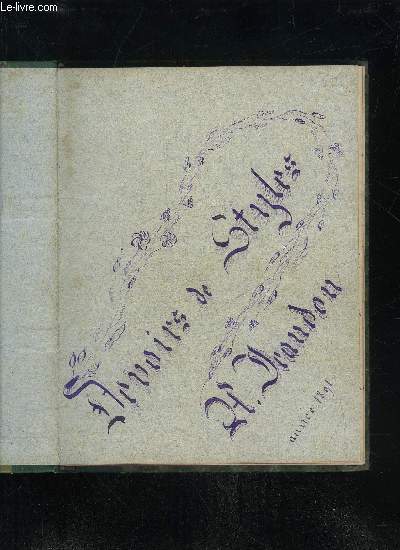 Le-livre.com
Devoirs de Styles
H. Jeandou
année 1891